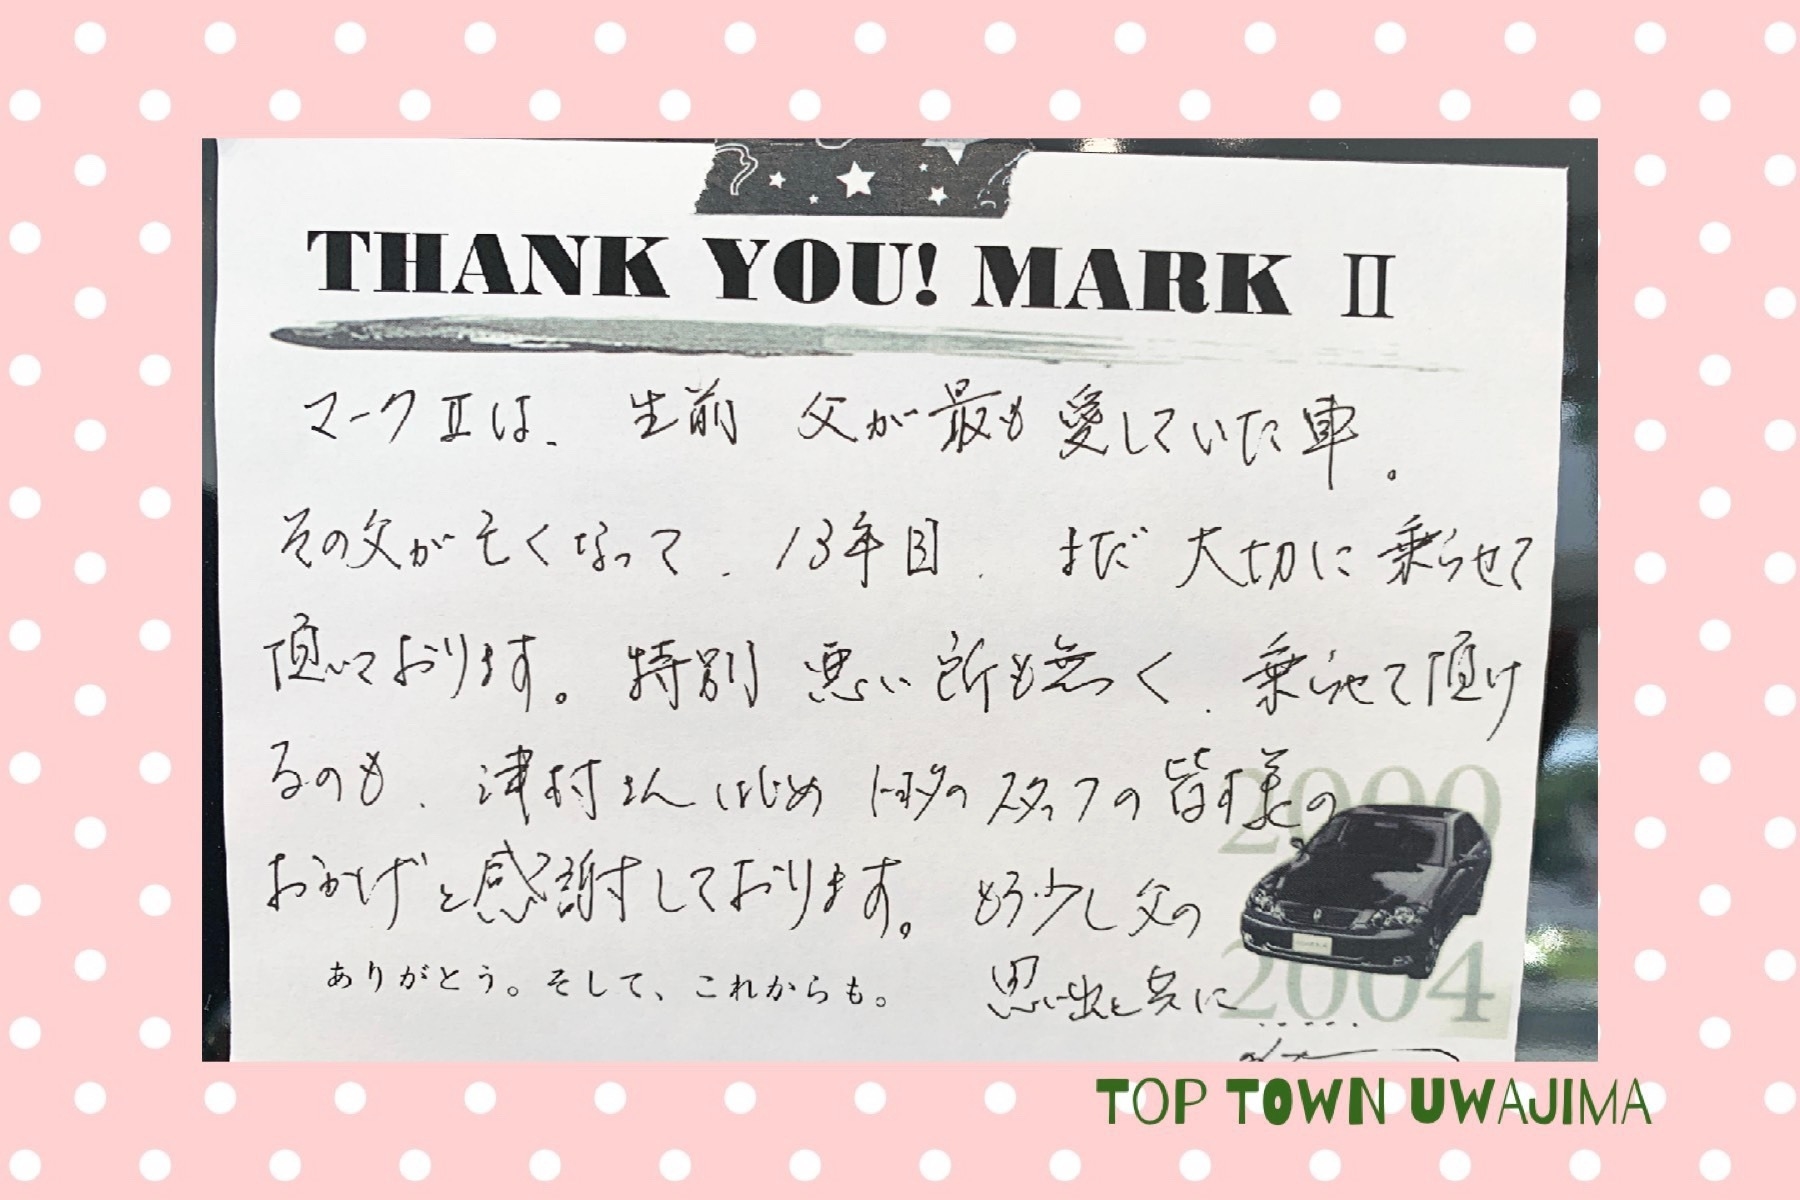 THANK YOU! MARK Ⅱ
マークⅡは、生前 父が最も愛していた車。
その父が亡くなって、13年目、まだ大切に乗らせて
頂いております。特別 悪い所も無く、乗らせて頂け
るのも、津村さんはじめ トヨタのスタッフの皆様の
おかげと感謝しております。もう少し父の
思い出と共に.....
ありがとう。そして、これからも。
2000
2004
TOP TOWN UWAJIMA